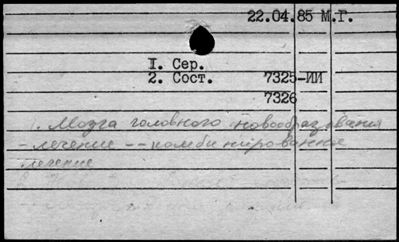 22.04.85 М.Г.
I. Сер.
2. Сост. 7325-ИИ
7326
1. Мозга головного новообразования
- лечение -- комбинированное
лечение